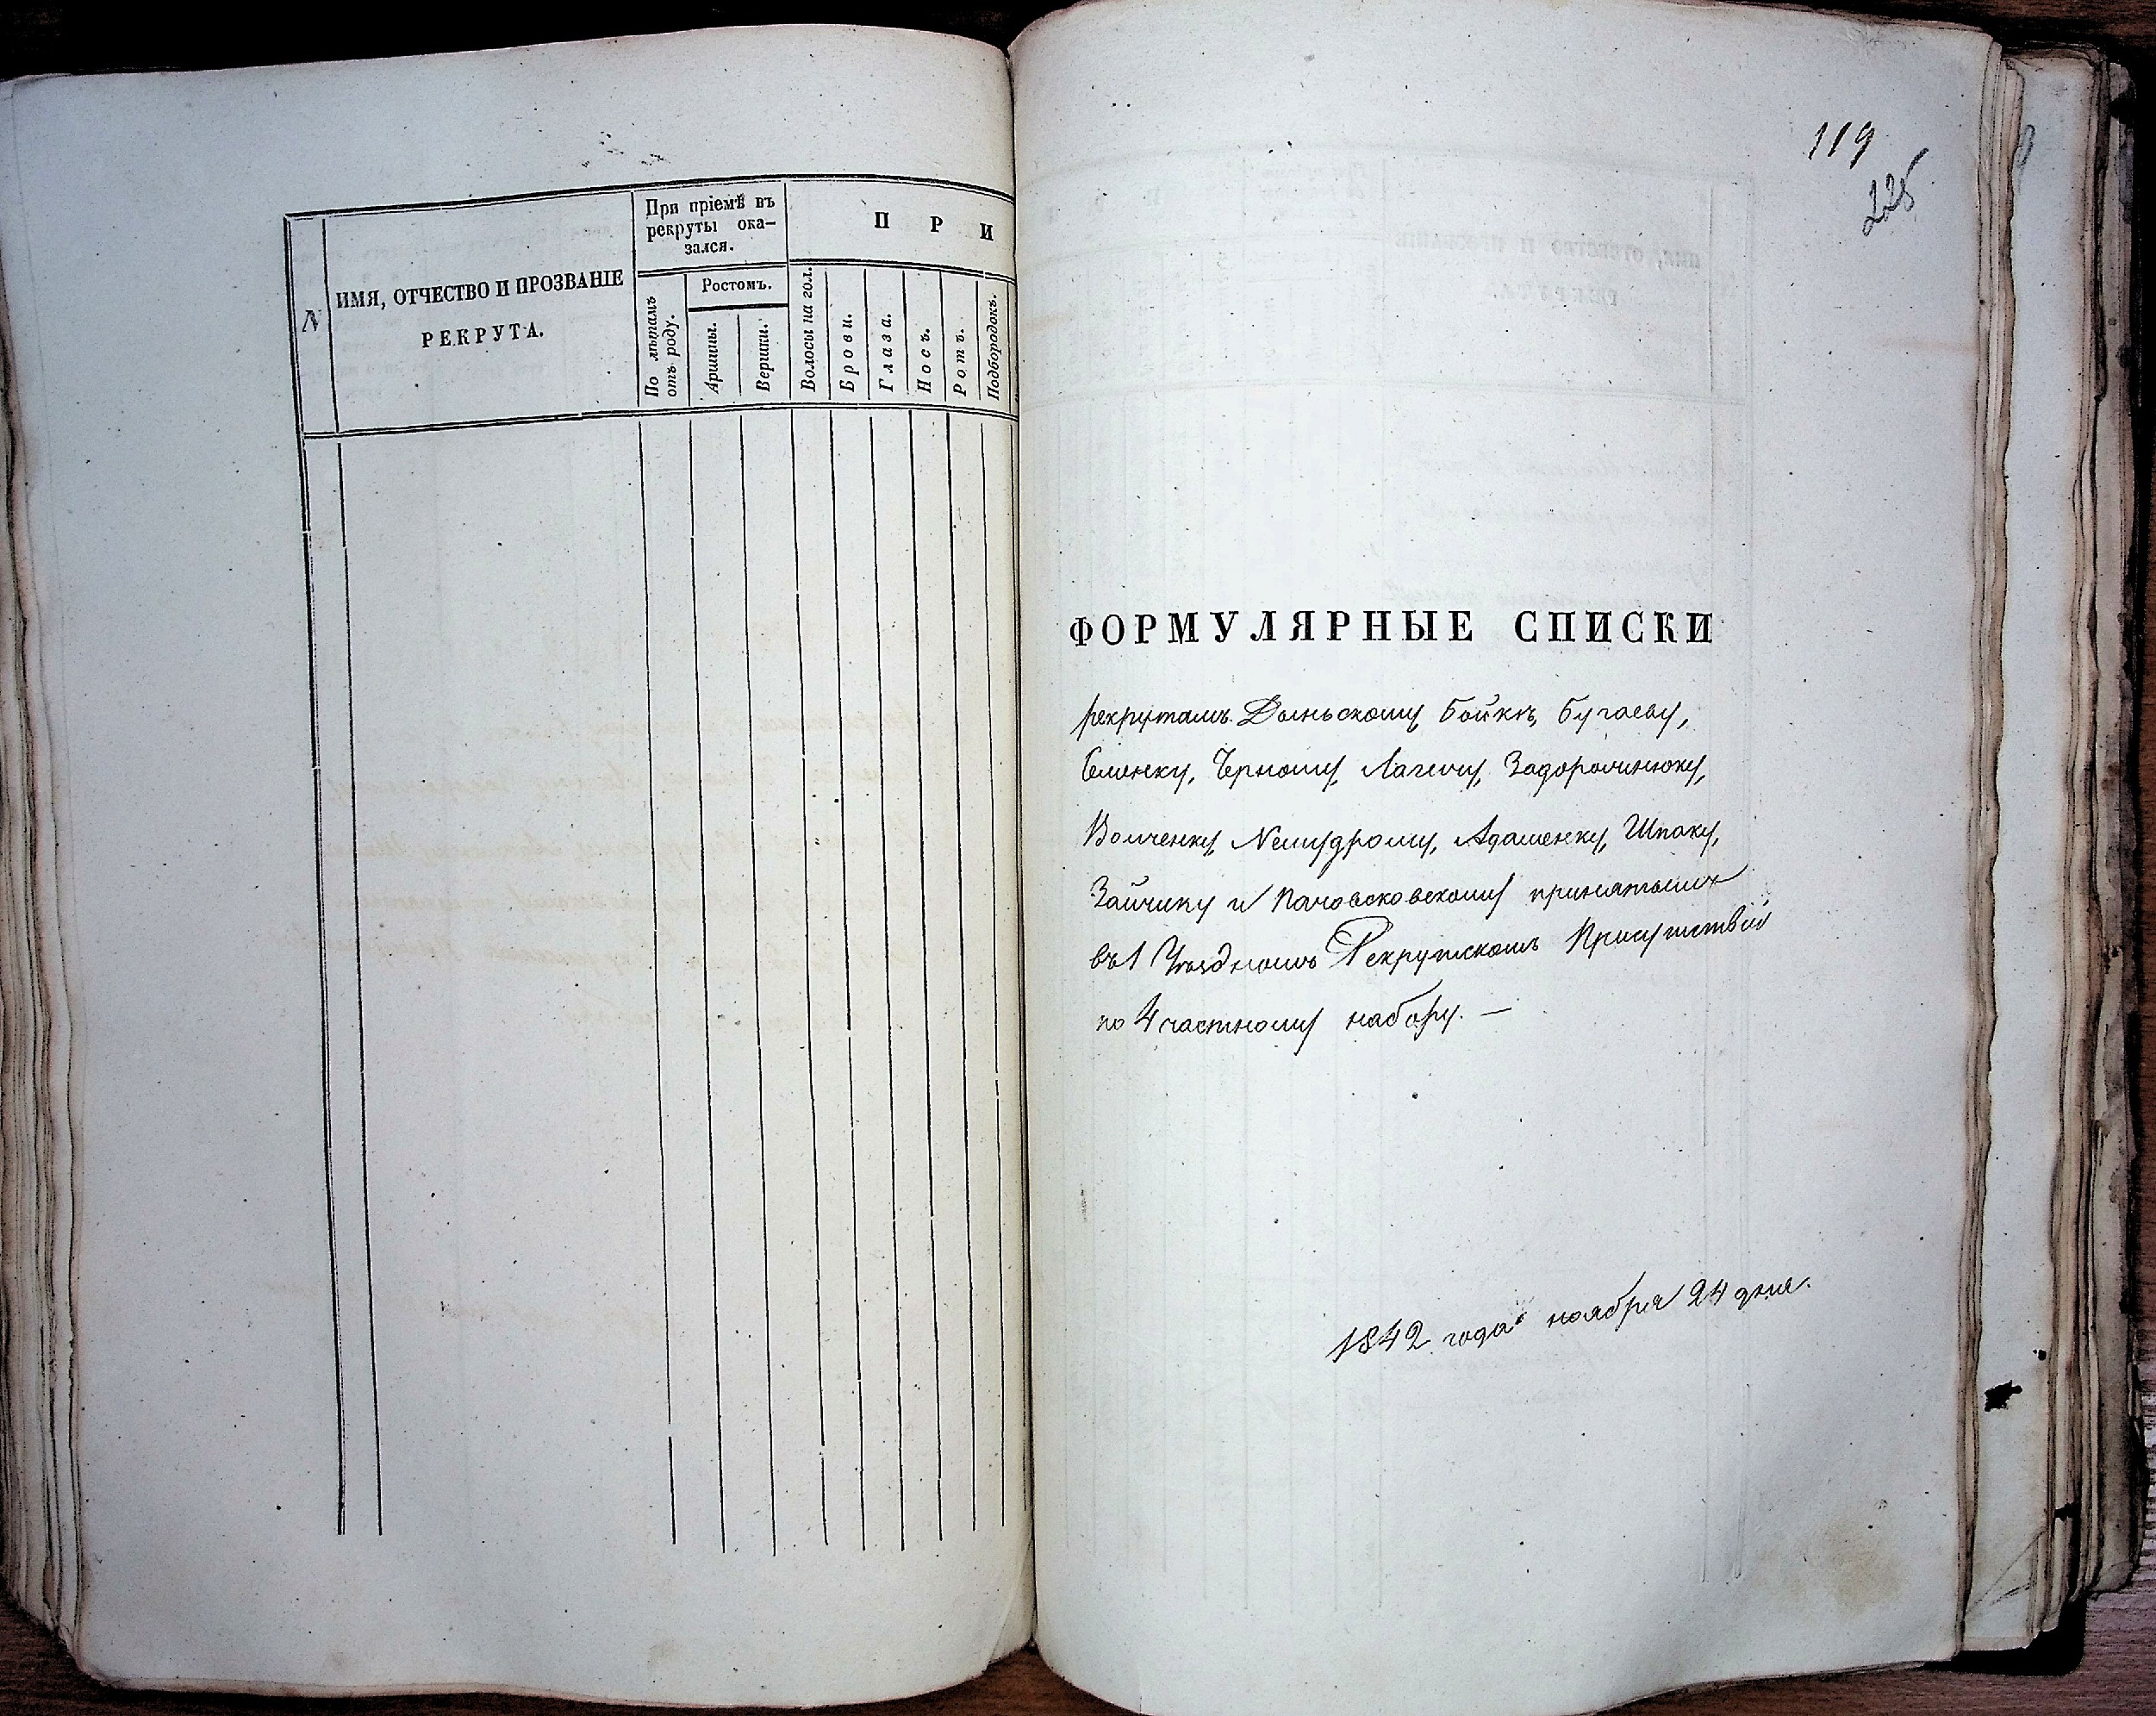 N
ИМЯ, ОТЧЕСТВО И ПРОЗВАНІЕ
РЕКРУТА.
При пріемѣ въ
рекруты ока-
зался.
По лѣтамъ
отъ роду.
Ростомъ.
Аршины.
Вершки.
П Р И
Волосы на гол.
Брови.
Глаза.
Носъ.
Ротъ.
Подбородокъ.
119
225
ФОРМУЛЯРНЫЕ СПИСКИ
рекрутамъ Бойкѣ, Бугаеву,
Черному, Задорожнюку,
Немудрому, Адаменку, Шпаку,
Зайчику и принятымъ
въ 1 Уѣздномъ Рекрутскомъ Присутствіи
по 4 частному набору. —
1842 года ноября 24 дня.